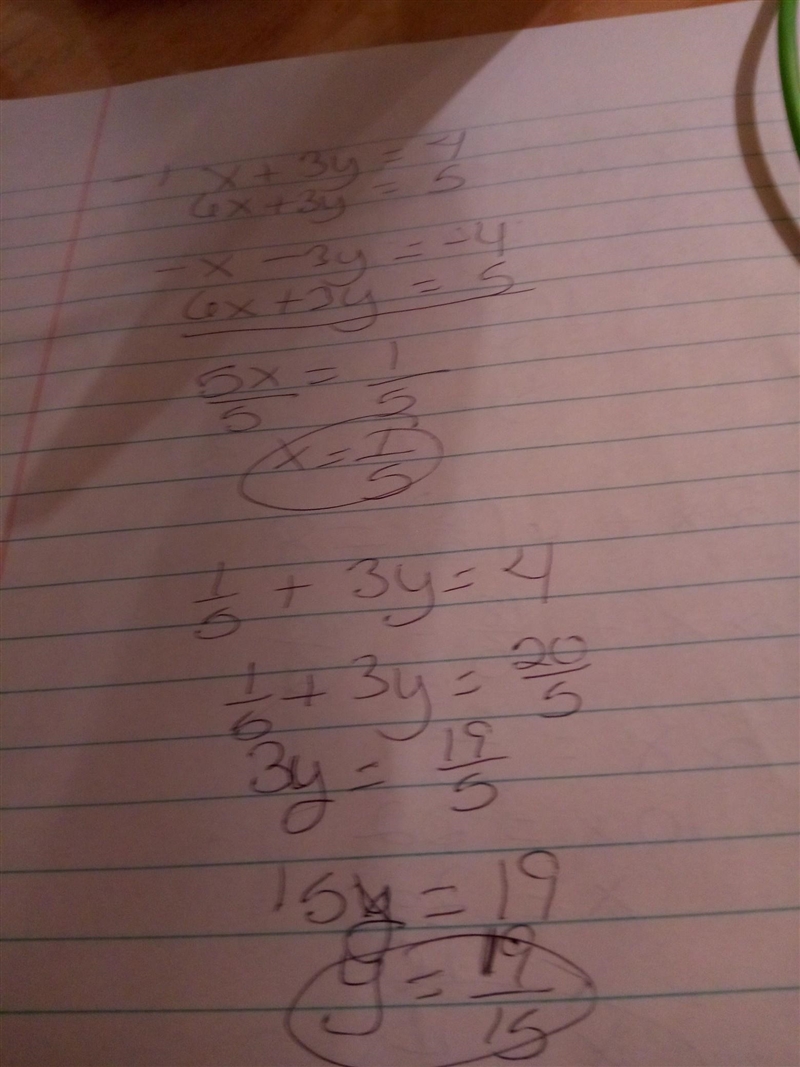 -1 x + 3y = 4
6x + 3y = 5
-x - 3y = -4
6x + 3y = 5
5x/5 = 1/5
x = 1/5
1/5 + 3y = 4
1/5 + 3y = 20/5
3y = 19/5
15y = 19
y = 19/15